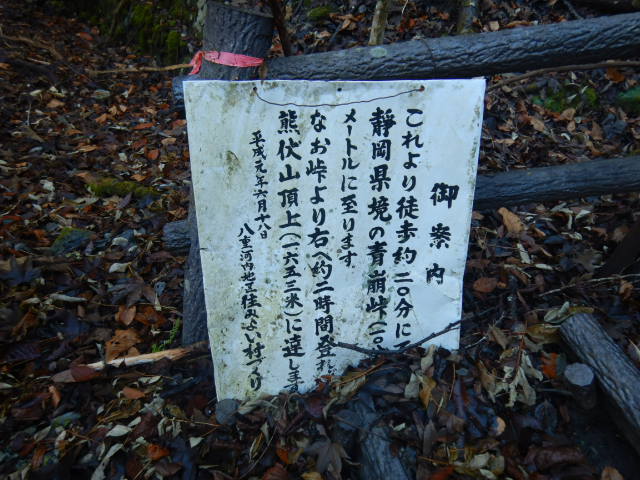 御案内
これより徒歩約二〇分にて
静岡県境の青崩峠(一〇
メートルに至ります
なお峠より右へ約二時間登れ
熊伏山頂上(一六五三米)に達します
平成元年六月十八日
八重河内地区住みよい村づくり